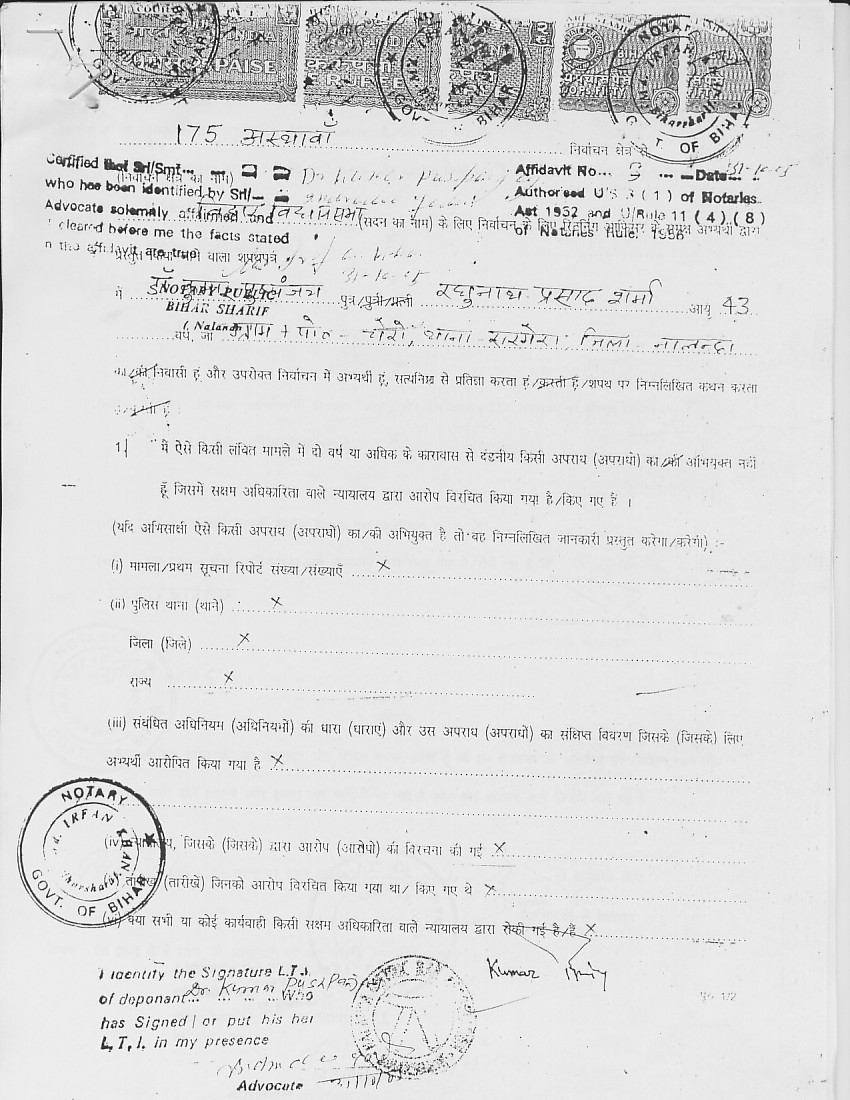 INDIA
PAISE
RUPEE
NOTARY
IRFAN
GOVT. OF BIHAR
175 अस्थावाँ
निर्वाचन क्षेत्र से
(निर्वाचन क्षेत्र का नाम)
Certified that Sri/Smt... Dr Kumar Pushpanjay
Affidavit No... Date... 31-10-05
who has been identified by Sri/-
Authorised U'S 3 (1) of Notaries
Advocate solemnly affirmed and
Act 1952 and U/Rule 11 (4) (8)
of Notaries Rule. 1956
बिहार विधान सभा (सदन का नाम) के लिए निर्वाचन के लिए रिटर्निंग ऑफिसर के समक्ष अभ्यर्थी द्वारा
declared before me the facts stated
in the affidavit are true
प्रस्तुत किया जाने वाला शपथपत्र
31-10-05
मैं डॉ० कुमार पुष्पंजय पुत्र/पुत्री/पत्नी रघुनाथ प्रसाद शर्मा आयु 43
NOTARY PUBLIC
BIHAR SHARIF
(Nalanda)
वर्ष, जो ग्राम + पो० - चेरो, थाना सारमेरा, जिला - नालन्दा
का/की निवासी हूं और उपरोक्त निर्वाचन में अभ्यर्थी हूं, सत्यनिष्ठा से प्रतिज्ञा करता हूं/करती हूँ/शपथ पर निम्नलिखित कथन करता
हूं/करती हूं :
1. मैं ऐसे किसी लंबित मामले में दो वर्ष या अधिक के कारावास से दंडनीय किसी अपराध (अपराधों) का/की अभियुक्त नहीं
हूँ जिसमें सक्षम अधिकारिता वाले न्यायालय द्वारा आरोप विरचित किया गया है/किए गए हैं ।
(यदि अभिसाक्षी ऐसे किसी अपराध (अपराधों) का/की अभियुक्त है तो वह निम्नलिखित जानकारी प्रस्तुत करेगा/करेगी) :-
(i) मामला/प्रथम सूचना रिपोर्ट संख्या/संख्याएँ X
(ii) पुलिस थाना (थाने) X
जिला (जिले) X
राज्य X
(iii) संबंधित अधिनियम (अधिनियमों) की धारा (धाराएं) और उस अपराध (अपराधों) का संक्षिप्त विवरण जिसके (जिसके) लिए
अभ्यर्थी आरोपित किया गया है X
(iv) न्यायालय, जिसके (जिसके) द्वारा आरोप (आरोपों) की विरचना की गई X
(v) तारीख (तारीखें) जिनको आरोप विरचित किया गया था/ किए गए थे X
(vi) क्या सभी या कोई कार्यवाही किसी सक्षम अधिकारिता वाले न्यायालय द्वारा रोकी गई है/हैं X
NOTARY
Md. IRFAN KHAN
Biharsharif
GOVT. OF BIHAR
Kumar
I identify the Signature L.T.I.
of deponant... Dr. Kumar Pushpanjay Who
has Signed / or put his her
L.T.I. in my presence
Advocate